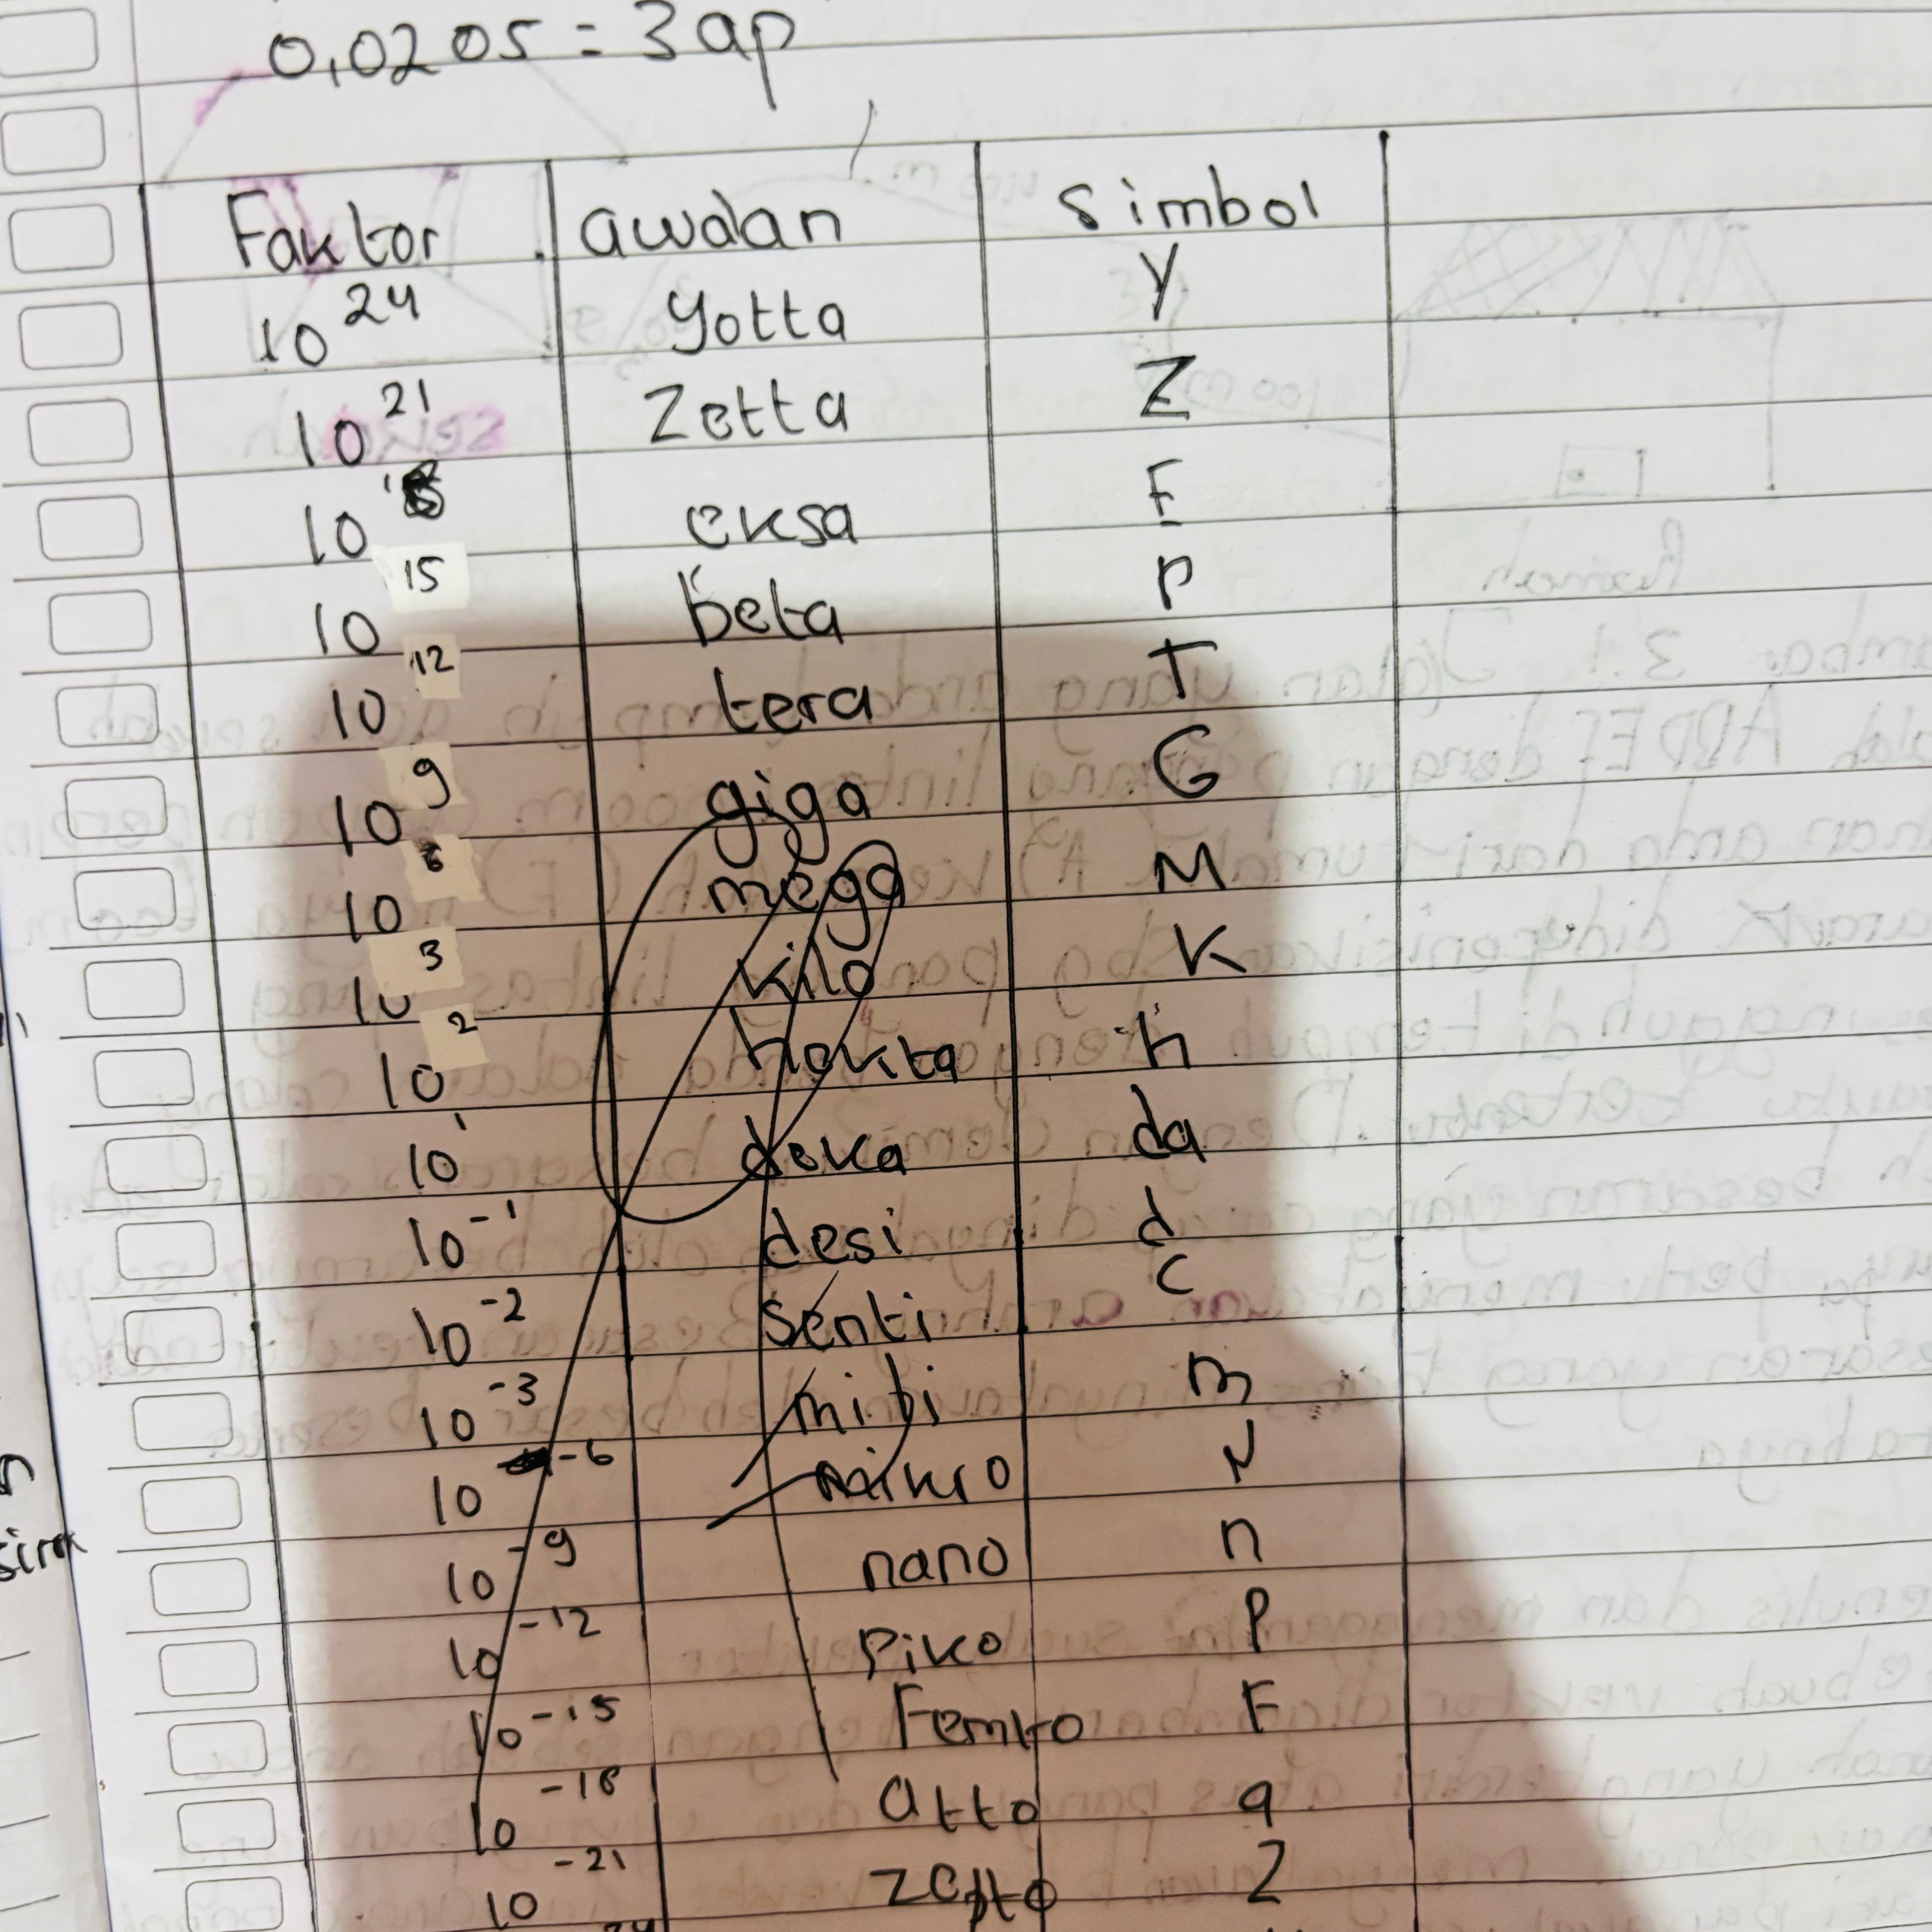 0,0205 = 3 ap
Faktor awalan simbol
10^24 yotta Y
10^21 Zetta Z
10^18 eksa E
10^15 beta P
10^12 tera T
10^9 giga G
10^6 mega M
10^3 kilo K
10^2 hekta h
10^1 deka da
10^-1 desi d
10^-2 senti c
10^-3 mili m
10^-6 mikro
10^-9 nano n
10^-12 Piko P
10^-15 Femto F
10^-18 atto a
10^-21 zepto Z